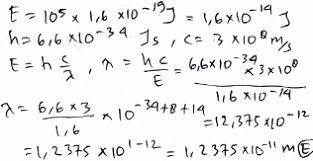 E = 10⁵ × 1,6 × 10⁻¹⁹ J = 1,6 × 10⁻¹⁴ J
h = 6,6 × 10⁻³⁴ Js , c = 3 × 10⁸ m/s
E = h c/λ , λ = hc/E = 6,6 × 10⁻³⁴ × 3 × 10⁸ / 1,6 × 10⁻¹⁴
λ = 6,6 × 3 / 1,6 × 10⁻³⁴⁺⁸⁺¹⁴ = 12,375 × 10⁻¹²
= 1,2375 × 10¹⁻¹² = 1,2375 × 10⁻¹¹ m (E)